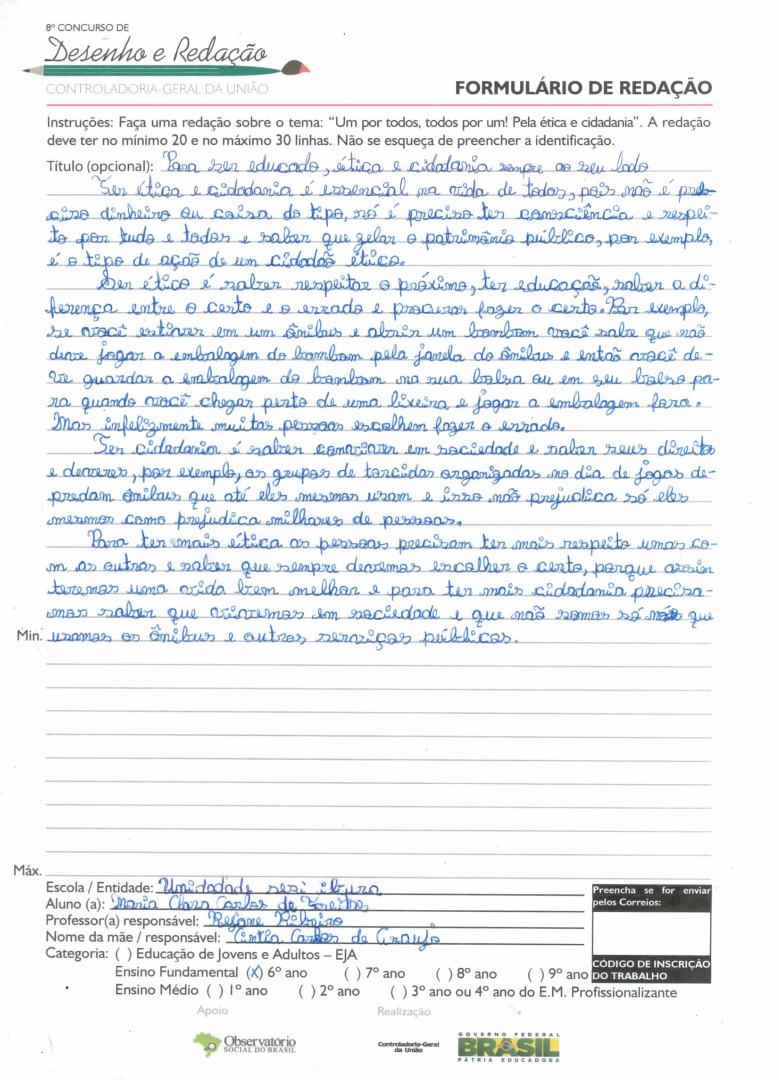 8º CONCURSO DE
Desenho e Redação
CONTROLADORIA-GERAL DA UNIÃO
FORMULÁRIO DE REDAÇÃO
Instruções: Faça uma redação sobre o tema: “Um por todos, todos por um! Pela ética e cidadania”. A redação
deve ter no mínimo 20 e no máximo 30 linhas. Não se esqueça de preencher a identificação.
Título (opcional): Para ser educado, ética e cidadania sempre ao seu lado
Ser ética e cidadania é essencial na vida de todos, pois não é pre-
ciso dinheiro ou coisa do tipo, só é preciso ter consciência e respei-
to por tudo e todos e saber que zelar o patrimônio público, por exemplo,
é o tipo de ação de um cidadão ético.
Ser ético é saber respeitar o próximo, ter educação, saber a di-
ferença entre o certo e o errado e procurar fazer o certo. Por exemplo,
se você estiver em um ônibus e abrir um bombom você sabe que não
deve jogar a embalagem do bombom pela janela do ônibus e então você de-
ve guardar a embalagem do bombom na sua bolsa ou em seu bolso pa-
ra quando você chegar perto de uma lixeira e jogar a embalagem fora.
Mas infelizmente muitas pessoas escolhem fazer o errado.
Ter cidadania é saber conviver em sociedade e saber seus direitos
e deveres, por exemplo, os grupos de torcidas organizadas no dia de jogos de-
predam ônibus que até eles mesmos usam e isso não prejudica só eles
mesmos como prejudica milhares de pessoas.
Para ter mais ética as pessoas precisam ter mais respeito umas co-
m as outras e saber que sempre devemos escolher o certo, porque assim
teremos uma vida bem melhor e para ter mais cidadania precisa-
mos saber que vivemos em sociedade e que não somos só nós que
Min. usamos os ônibus e outros serviços públicos.
Máx.
Escola / Entidade: Unidadade sesi ibura
Aluno (a): Maria Clara Carlos de Freitas
Professor(a) responsável: Rejane Ribeiro
Nome da mãe / responsável: Cintia Carlos de Araujo
Categoria: ( ) Educação de Jovens e Adultos – EJA
Ensino Fundamental (X) 6º ano ( ) 7º ano ( ) 8º ano ( ) 9º ano
Ensino Médio ( ) 1º ano ( ) 2º ano ( ) 3º ano ou 4º ano do E.M. Profissionalizante
Preencha se for enviar
pelos Correios:
CÓDIGO DE INSCRIÇÃO
DO TRABALHO
Apoio
Realização
Observatório
SOCIAL DO BRASIL
Controladoria-Geral
da União
GOVERNO FEDERAL
BRASIL
PÁTRIA EDUCADORA